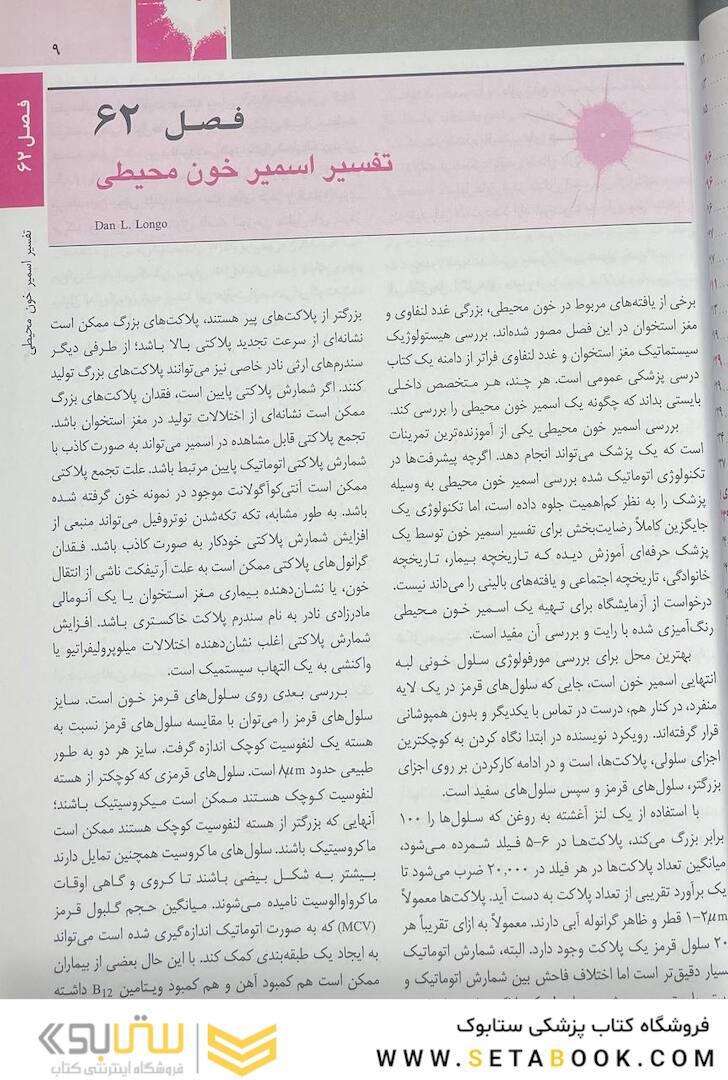 ۹
فصل ۶۲
تفسیر اسمیر خون محیطی
فصل ۶۲
تفسیر اسمیر خون محیطی
Dan L. Longo
برخی از یافته‌های مربوط در خون محیطی، بزرگی غدد لنفاوی و
مغز استخوان در این فصل مصور شده‌اند. بررسی هیستولوژیک
سیستماتیک مغز استخوان و غدد لنفاوی فراتر از دامنه یک کتاب
درسی پزشکی عمومی است. هر چند، هر متخصص داخلی
بایستی بداند که چگونه یک اسمیر خون محیطی را بررسی کند.
بررسی اسمیر خون محیطی یکی از آموزنده‌ترین تمرینات
است که یک پزشک می‌تواند انجام دهد. اگرچه پیشرفت‌ها در
تکنولوژی اتوماتیک شده بررسی اسمیر خون محیطی به وسیله
پزشک را به نظر کم‌اهمیت جلوه داده است، اما تکنولوژی یک
جایگزین کاملاً رضایت‌بخش برای تفسیر اسمیر خون توسط یک
پزشک حرفه‌ای آموزش دیده که تاریخچه بیمار، تاریخچه
خانوادگی، تاریخچه اجتماعی و یافته‌های بالینی را می‌داند نیست.
درخواست از آزمایشگاه برای تهیه یک اسمیر خون محیطی
رنگ‌آمیزی شده با رایت و بررسی آن مفید است.
بهترین محل برای بررسی مورفولوژی سلول خونی لبه
انتهایی اسمیر خون است، جایی که سلول‌های قرمز در یک لایه
منفرد، در کنار هم، درست در تماس با یکدیگر و بدون همپوشانی
قرار گرفته‌اند. رویکرد نویسنده در ابتدا نگاه کردن به کوچکترین
اجزای سلولی، پلاکت‌ها، است و در ادامه کارکردن بر روی اجزای
بزرگتر، سلول‌های قرمز و سپس سلول‌های سفید است.
با استفاده از یک لنز آغشته به روغن که سلول‌ها را ۱۰۰
برابر بزرگ می‌کند، پلاکت‌ها در ۶-۵ فیلد شمرده می‌شود،
میانگین تعداد پلاکت‌ها در هر فیلد در ۲۰,۰۰۰ ضرب می‌شود تا
یک برآورد تقریبی از تعداد پلاکت به دست آید. پلاکت‌ها معمولاً
۱-۲μm قطر و ظاهر گرانوله آبی دارند. معمولاً به ازای تقریباً هر
۲۰ سلول قرمز یک پلاکت وجود دارد. البته، شمارش اتوماتیک
بسیار دقیق‌تر است اما اختلاف فاحش بین شمارش اتوماتیک و
بزرگتر از پلاکت‌های پیر هستند، پلاکت‌های بزرگ ممکن است
نشانه‌ای از سرعت تجدید پلاکتی بالا باشد؛ از طرفی دیگر
سندرم‌های ارثی نادر خاصی نیز می‌توانند پلاکت‌های بزرگ تولید
کنند. اگر شمارش پلاکتی پایین است، فقدان پلاکت‌های بزرگ
ممکن است نشانه‌ای از اختلالات تولید در مغز استخوان باشد.
تجمع پلاکتی قابل مشاهده در اسمیر می‌تواند به صورت کاذب با
شمارش پلاکتی اتوماتیک پایین مرتبط باشد. علت تجمع پلاکتی
ممکن است آنتی‌کوآگولانت موجود در نمونه خون گرفته شده
باشد. به طور مشابه، تکه تکه‌شدن نوتروفیل می‌تواند منبعی از
افزایش شمارش پلاکتی خودکار به صورت کاذب باشد. فقدان
گرانول‌های پلاکتی ممکن است به علت آرتیفکت ناشی از انتقال
خون، یا نشان‌دهنده بیماری مغز استخوان یا یک آنومالی
مادرزادی نادر به نام سندرم پلاکت خاکستری باشد. افزایش
شمارش پلاکتی اغلب نشان‌دهنده اختلالات میلوپرولیفراتیو یا
واکنشی به یک التهاب سیستمیک است.
بررسی بعدی روی سلول‌های قرمز خون است. سایز
سلول‌های قرمز را می‌توان با مقایسه سلول‌های قرمز نسبت به
هسته یک لنفوسیت کوچک اندازه گرفت. سایز هر دو به طور
طبیعی حدود ۸μm است. سلول‌های قرمزی که کوچکتر از هسته
لنفوسیت کوچک هستند ممکن است میکروسیتیک باشند؛
آنهایی که بزرگتر از هسته لنفوسیت کوچک هستند ممکن است
ماکروسیتیک باشند. سلول‌های ماکروسیت همچنین تمایل دارند
بیشتر به شکل بیضی باشند تا کروی و گاهی اوقات
ماکرواوالوسیت نامیده می‌شوند. میانگین حجم گلبول قرمز
(MCV) که به صورت اتوماتیک اندازه‌گیری شده است می‌تواند
به ایجاد یک طبقه‌بندی کمک کند. با این حال بعضی از بیماران
ممکن است هم کمبود آهن و هم کمبود ویتامین B12 داشته
ستابوک
فروشگاه اینترنتی کتاب
فروشگاه کتاب پزشکی ستابوک
WWW.SETABOOK.COM